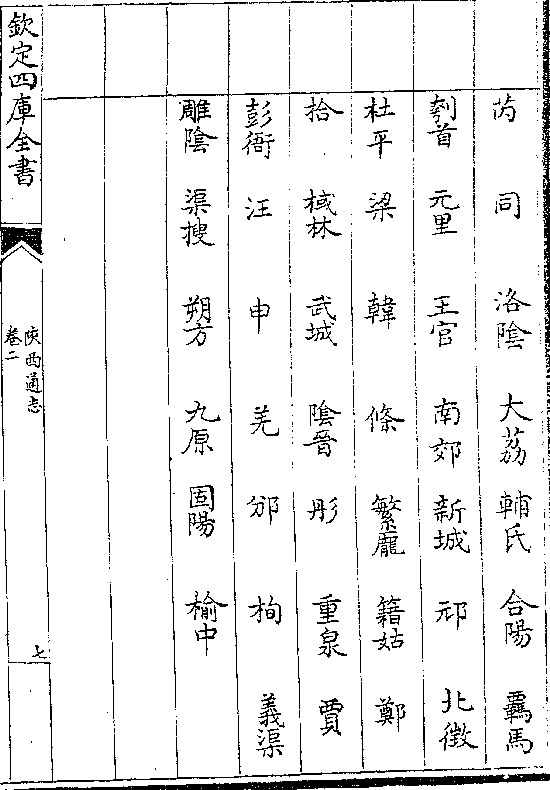 芮 同 洛陰 大荔 輔氏 合陽 羈馬
刳首 元里 王官 南郊 新城 邧 北徵
杜平 梁 韓 條 繁龐 籍姑 鄭
拾 棫林 武城 陰晉 彤 重泉 賈
彭衙 汪 申 羌 邠 栒 義渠
雕陰 渠搜 朔方 九原 固陽 榆中
欽定四庫全書
陝西通志
卷二
七